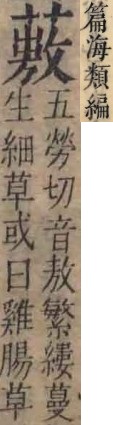 篇海類編
蔜
五勞切音敖繁縷蔓
生細草或曰雞腸草